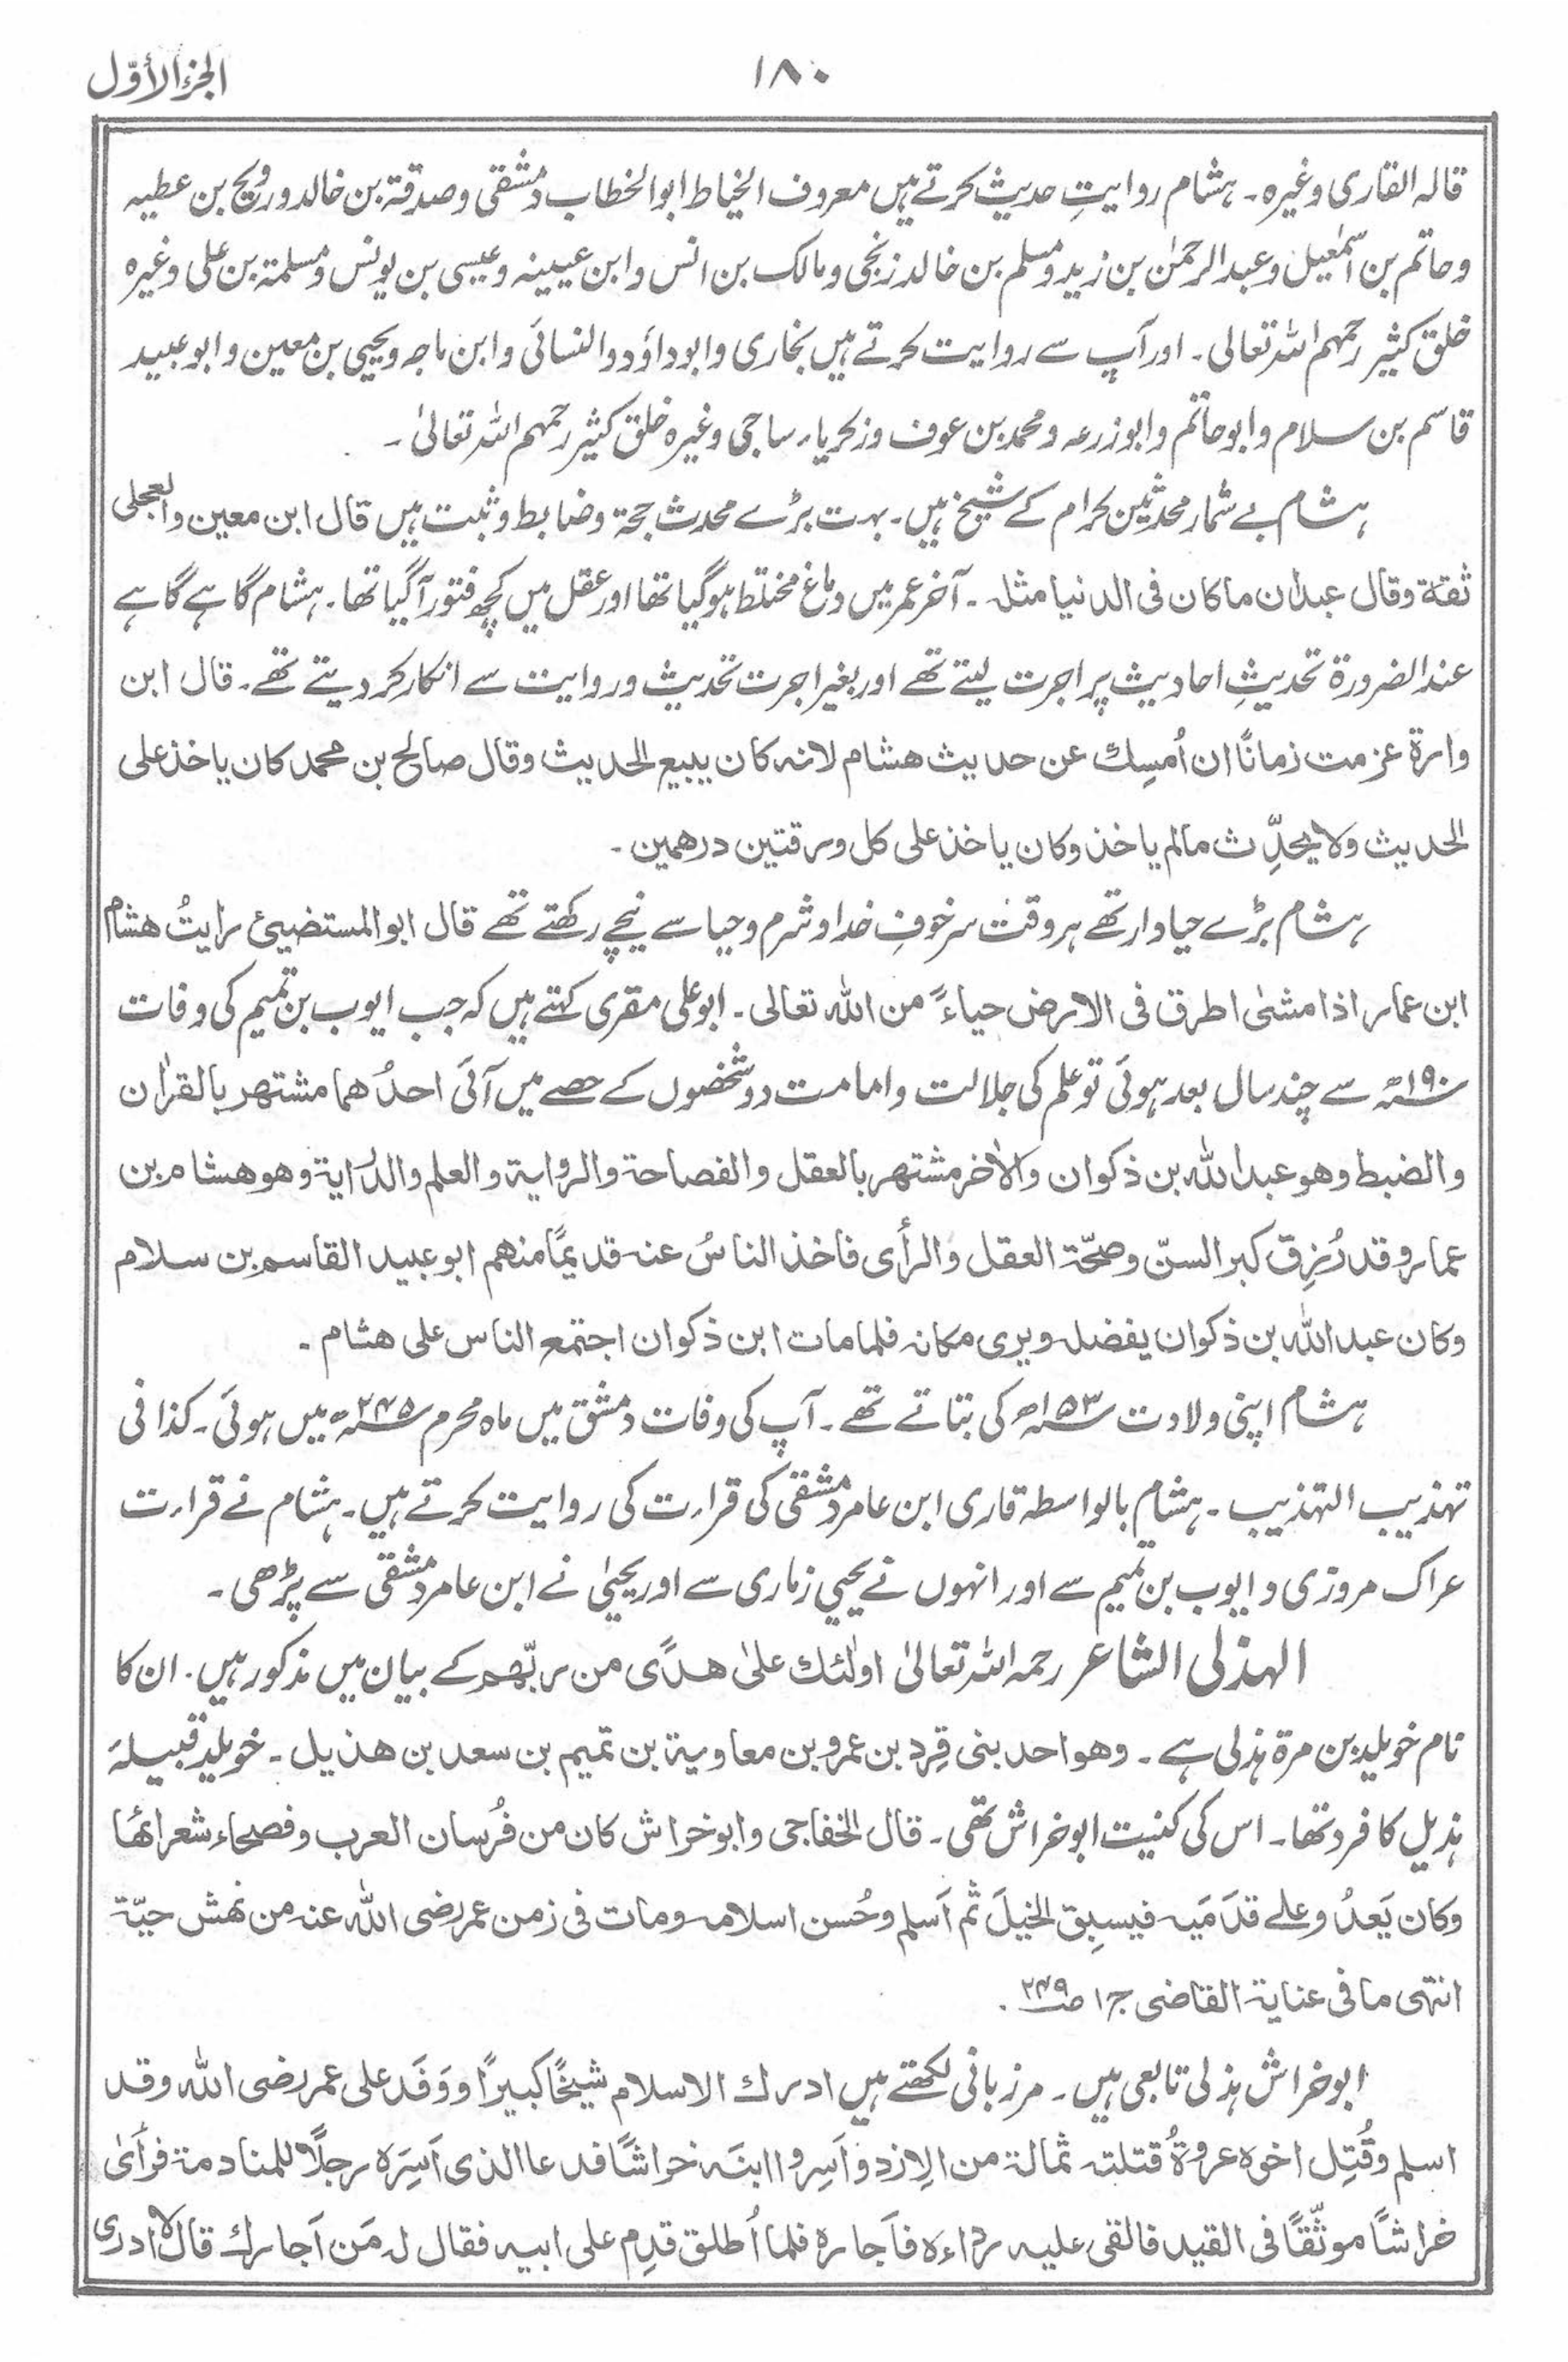 الجزء الأوّل
١٨٠
قالہ القاری وغیرہ۔ ہشام روایتِ حدیث کرتے ہیں معروف الخیاط ابوالخطاب دمشقی وصدقۃ بن خالد ورویح بن عطیہ
وحاتم بن اسمٰعیل وعبدالرحمٰن بن زید ومسلم بن خالد زنجی ومالک بن انس وابن عیینہ وعیسی بن یونس ومسلمۃ بن علی وغیرہ
خلق کثیر رحمہم اللہ تعالی۔ اور آپ سے روایت کرتے ہیں بخاری وابوداؤد والنسائی وابن ماجہ ویحیی بن معین وابوعبید
قاسم بن سلام وابوحاتم وابوزرعہ ومحمد بن عوف وزکریا ساجی وغیرہ خلق کثیر رحمہم اللہ تعالیٰ۔
ہشام بے شمار محدثین کرام کے شیخ ہیں۔ بہت بڑے محدث حجۃ وضابط وثبت ہیں قال ابن معین والعجلی
ثقۃ وقال عبدان ماکان فی الدنیا مثلہ۔ آخر عمر میں دماغ مختلط ہوگیا تھا اور عقل میں کچھ فتور آگیا تھا۔ ہشام گاہے گاہے
عندالضرورۃ تحدیثِ احادیث پر اجرت لیتے تھے اور بغیر اجرت تحدیث وروایت سے انکار کردیتے تھے۔ قال ابن
وارۃ عزمت زمانًا ان اُمسِك عن حدیث هشام لانہ کان یبیع الحدیث وقال صالح بن محمد کان یاخذ علی
الحدیث ولا یحدِّث مالم یاخذ وکان یاخذ علی کل ورقتین درهمین۔
ہشام بڑے حیادار تھے ہر وقت سر خوفِ خدا وشرم وحیا سے نیچے رکھتے تھے قال ابوالمستضیئ رایتُ هشام
ابن عمار اذا مشیٰ اطرق فی الارض حیاءً من اللہ تعالی۔ ابوعلی مقری کہتے ہیں کہ جب ایوب بن تمیم کی وفات
۱۹۰ھ سے چند سال بعد ہوئی تو علم کی جلالت وامامت دو شخصوں کے حصے میں آئی احدُهما مشتهر بالقراٰن
والضبط وهو عبداللہ بن ذکوان والاٰخر مشتهر بالعقل والفصاحۃ والروایۃ والعلم والدِّرایۃ وهو هشام بن
عمار وقد رُزِق کبر السنّ وصحّۃ العقل والرأی فاخذ الناسُ عنہ قدیمًا منهم ابوعبید القاسم بن سلام
وکان عبداللہ بن ذکوان یفضلہ ویری مکانہ فلما مات ابن ذکوان اجتمع الناس علی هشام۔
ہشام اپنی ولادت ۱۵۳ھ کی بتاتے تھے۔ آپ کی وفات دمشق میں ماہ محرم ۲۴۵ھ میں ہوئی۔ کذا فی
تہذیب التہذیب۔ ہشام بالواسطہ قاری ابن عامر دمشقی کی قرارت کی روایت کرتے ہیں۔ ہشام نے قرارت
عراک مروزی وایوب بن تمیم سے اور انہوں نے یحیی زماری سے اور یحییٰ نے ابن عامر دمشقی سے پڑھی۔
الہذلی الشاعر رحمہ اللہ تعالیٰ اولٰئك علیٰ هدًی من ربّهم کے بیان میں مذکور ہیں۔ ان کا
نام خویلد بن مرۃ ہذلی ہے۔ وهو احد بنی قِرد بن عمرو بن معاویۃ بن تمیم بن سعد بن هذیل۔ خویلد قبیلۂ
ہذیل کا فرد تھا۔ اس کی کنیت ابوخراش تھی۔ قال الخفاجی وابوخراش کان من فُرسان العرب وفصحاء شعرائها
وکان یَعدُو علے قدَمَیہ فیسبِق الخیلَ ثم اَسلم وحُسن اسلامہ ومات فی زمن عمر رضی اللہ عنہ من نهش حیّۃ
انتهی ما فی عنایۃ القاضی ج۱ ص۲۴۹۔
ابوخراش ہذلی تابعی ہیں۔ مرزبانی لکھتے ہیں ادرك الاسلام شیخًا کبیرًا ووَفَد علی عمر رضی اللہ وقد
اسلم وقُتِل اخوہ عروۃُ قتلتہ ثمالۃ من الازد واَسِروا ابنَہ خراشًا فدعا الذی اَسِرَہ رجلًا للمنادمۃ فرأیٰ
خراشًا موثَّقًا فی القید فالقی علیہ رداءہ فاَجارہ فلما اُطلق قدِم علی ابیہ فقال لہ مَن اَجارك قال لا ادری